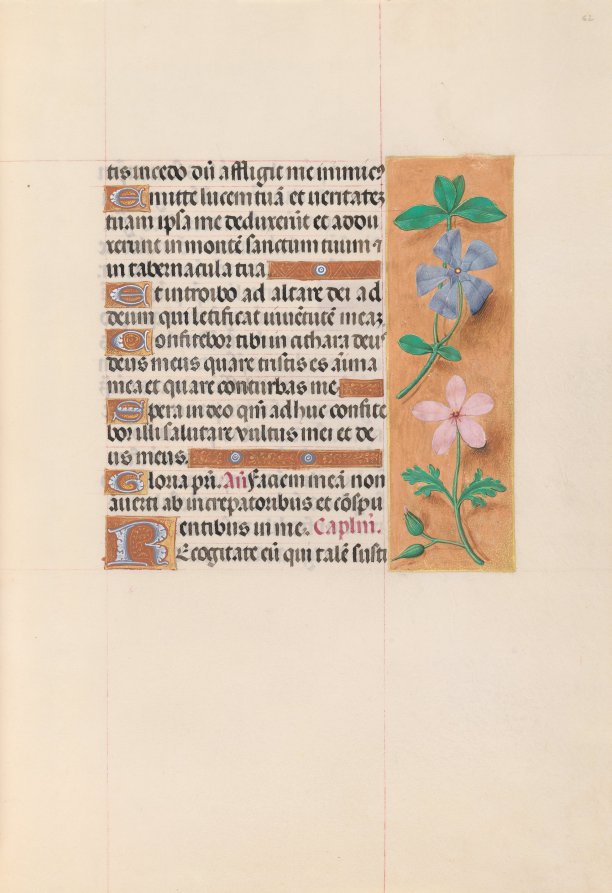 62
tis incedo dū affligit me inimic9
Emitte lucem tuā et ueritatez
tuam ipsa me deduxerūt et addu
xerunt in montē sanctum tuum ⁊
in tabernacula tua
Et introibo ad altare dei ad
deum qui letificat iuuētutē meaz
Confitebor tibi in cithara deus
deus meus quare tristis es aīma
mea et quare conturbas me
Spera in deo qm̄ adhuc confite
bor illi salutare vultus mei et de
us meus
Gloria pri. Añ faciem meā non
auerti ab increpatoribus et cōspu
entibus in me. Caplm̄.
REcogitate eū qui talē susti